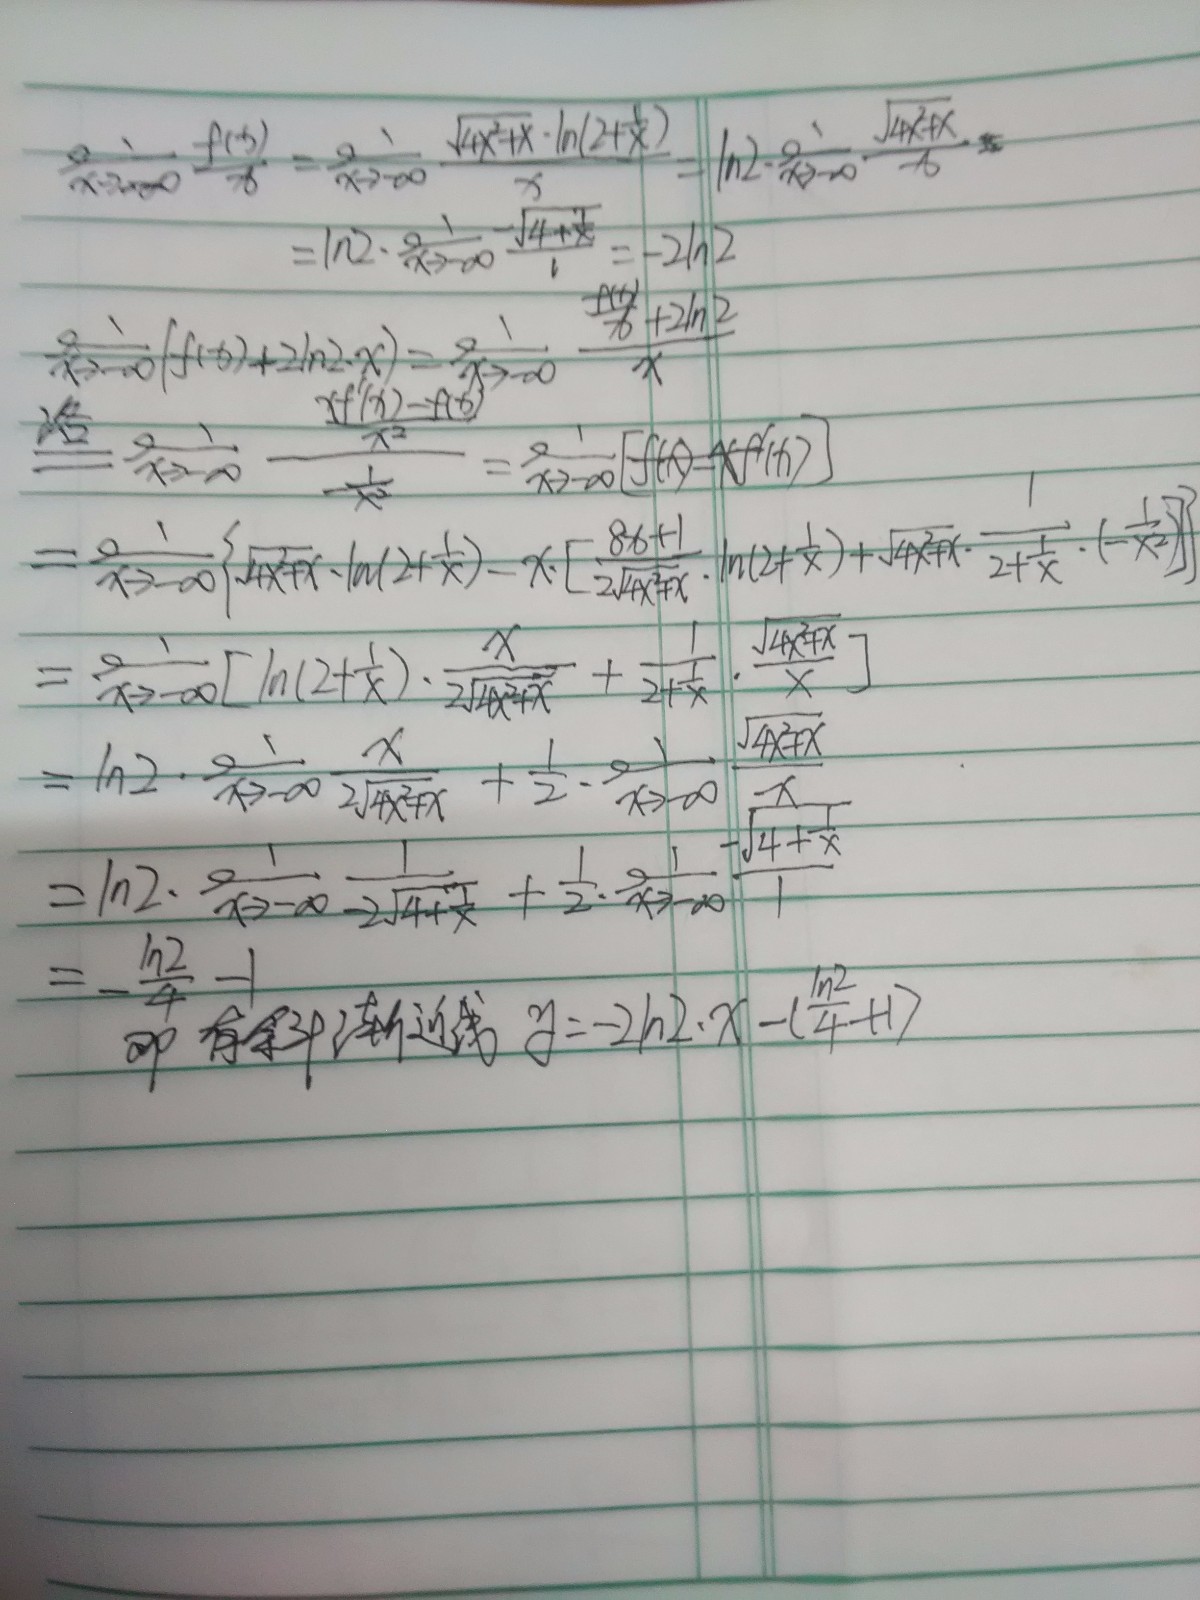 lim_{x→-∞} f(x)/x = lim_{x→-∞} √(4x²+x)·ln(2+1/x)/x = ln2·lim_{x→-∞} √(4x²+x)/x
= ln2·lim_{x→-∞} -√(4+1/x)/1 = -2ln2
lim_{x→-∞} (f(x)+2ln2·x) = lim_{x→-∞} (f(x)/x+2ln2)/x
= lim_{x→-∞} ((xf'(x)-f(x))/x²)/(-1/x²) = lim_{x→-∞} [f(x)-xf'(x)]
= lim_{x→-∞} {√(4x²+x)·ln(2+1/x)-x·[(8x+1)/(2√(4x²+x))·ln(2+1/x)+√(4x²+x)·1/(2+1/x)·(-1/x²)]}
= lim_{x→-∞} [ln(2+1/x)·x/(2√(4x²+x)) + 1/(2+1/x)·√(4x²+x)/x]
= ln2·lim_{x→-∞} x/(2√(4x²+x)) + 1/2·lim_{x→-∞} √(4x²+x)/x
= ln2·lim_{x→-∞} 1/(-2√(4+1/x)) + 1/2·lim_{x→-∞} -√(4+1/x)/1
= -ln2/4 -1
即有斜渐近线 y=-2ln2·x-(ln2/4+1)